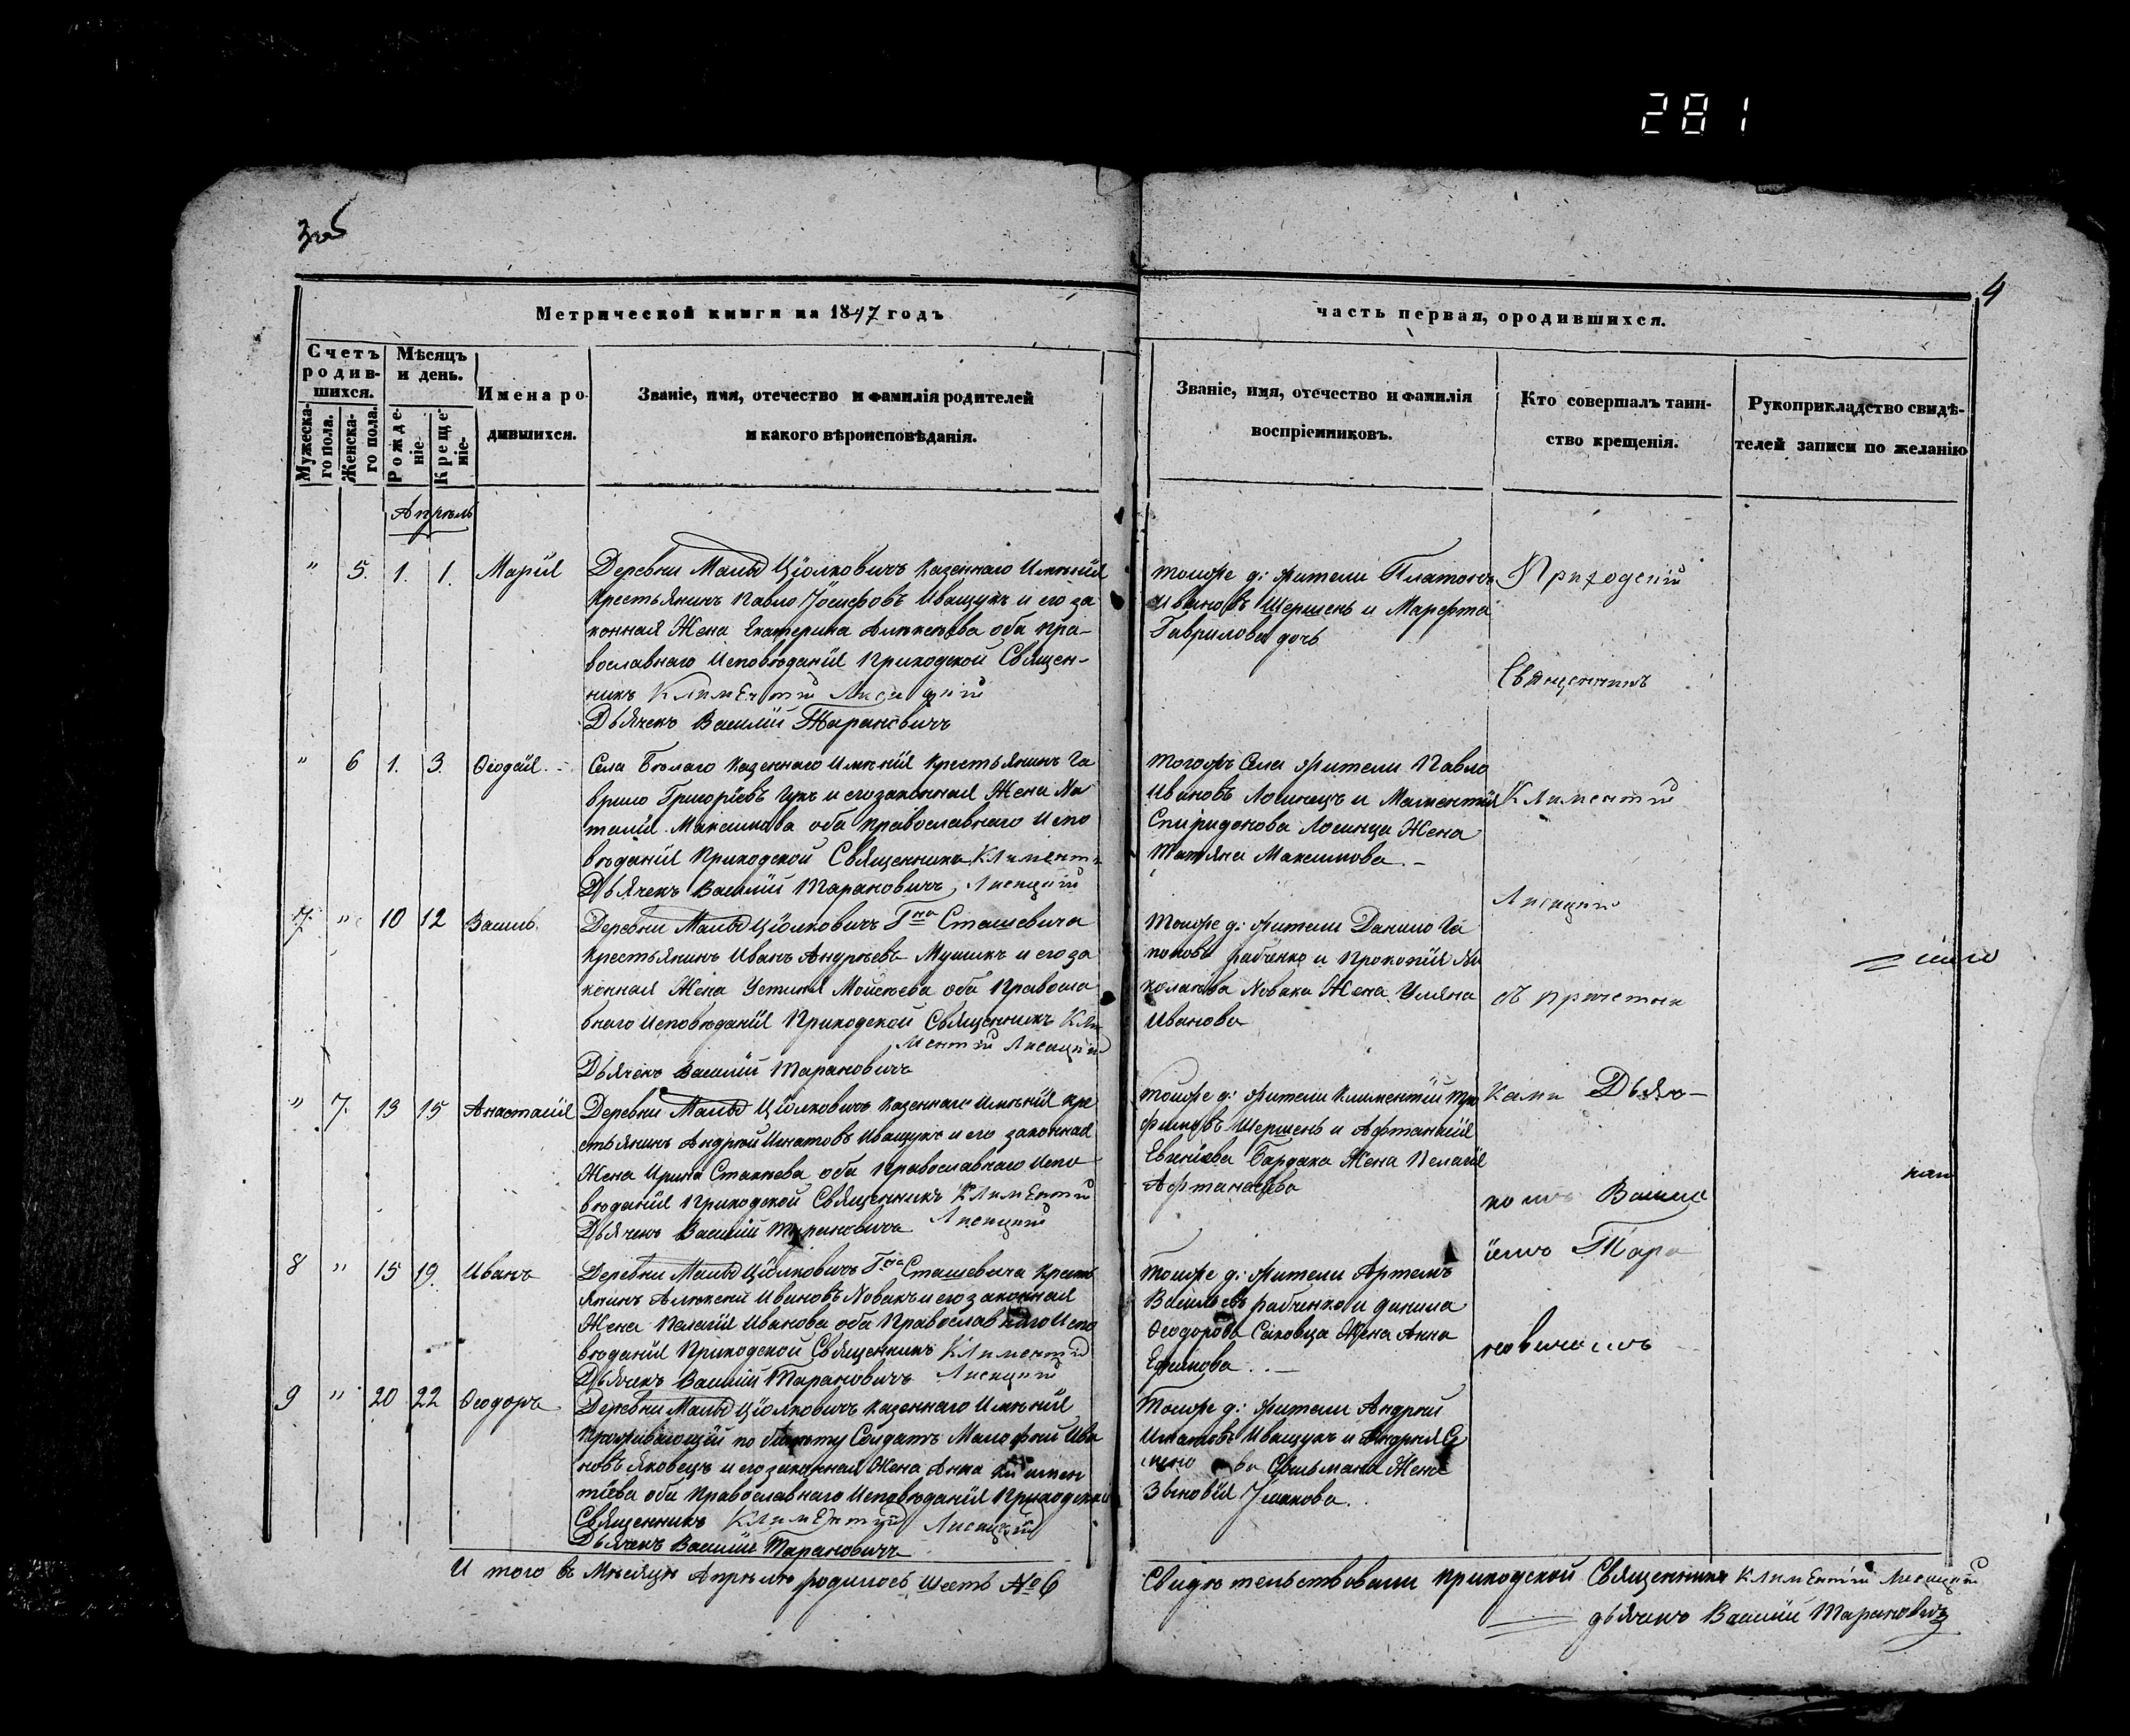 281
4
Метрической книги на 1847 годъ
часть первая, ородившихся.
Счетъ родившихся.
Мужескаго пола.
Женскаго пола.
Мѣсяцъ и день.
Рожденіе-
Крещеніе-
Имена родившихся.
Званіе, имя, отечество и фамилія родителей
и какого вѣроисповѣданія.
Званіе, имя, отечество и фамилія
воспріемниковъ.
Кто совершалъ таин-
ство крещенія.
Рукоприкладство свидѣ-
телей записи по желанію
Апрѣль
" 5. 1. 1. Марія
Деревни Малы Ціолковичъ Казеннаго Имѣнія
Крестьянинъ Павло Іосифовъ Иващукъ и его за
конная Жена Екатерина Алексѣева оба Пра-
вославнаго Исповѣданія Приходской Священ-
никъ Климентій Лисицкій
Дьячекъ Василій Тарановичъ
тоийже д: жители Платонъ
Ивановъ Шершень и Марфта
Гаврилова дочь
" 6 1. 3. Ѳеодосія
Села Бѣлаго Казеннаго Имѣнія Крестьянинъ Га
врило Григоріевъ Гукъ и его законная Жена На
талія Максимова оба Православнаго Испо
вѣданія Приходской Священникъ Климентій
Дьячекъ Василій Тарановичъ Лисицкій
тогожъ Села жители Павло
Ивановъ Лосинецъ и
Спиридонова Лосинца Жена
Татяна Максимова. –
7. " 10 12 Василь
Деревни Малы Ціолковичъ Гна Сташевича
Крестьянинъ Иванъ Андреевъ Мушикъ и его за
конная Жена Устиня Мойсеева оба Правосла
внаго Исповѣданія Приходской Священникъ Кли
ментій Лисицкій
Дьячекъ Василій Тарановичъ
тоийже д: жители Данило Га
поновъ рабченко и Прокопія Ни
колаева Новака Жена Уляна
Иванова
" 7. 13 15 Анастасія
Деревни Малы Ціолковичъ Казеннаго Имѣнія Кре
стьянинъ Андрей Игнатовъ Иващукъ и его законная
Жена Ирина оба Православнаго Испо
вѣданія Приходской Священникъ Климентій
Дьячекъ Василій Тарановичъ Лисицкій
тоийже д: жители Климентій Тро
фимовъ Шершень и Афтанасія
Бардака Жена Пелагія
Афтанасіева
8 " 15 19. Иванъ
Деревни Малы Ціолковичъ Гна Сташевича Кресть
янинъ Алексѣй Ивановъ Новакъ и его законная
Жена Пелагія Иванова оба Православнаго Испо
вѣданія Приходской Священникъ Климентій
Дьячекъ Василій Тарановичъ Лисицкій
Тоийже д: жители Артемъ
Васильевъ рабченко и данила
Ѳеодорова Саковца Жена Анна
Ефимова. –
9 " 20 22 Ѳеодоръ
Деревни Малы Ціолковичъ Казеннаго Имѣнія
Проживающій по билету Солдатъ Малофей Ива
новъ Яковецъ и его законная Жена Анна Климен
тіева оба Православнаго Исповѣданія Приходской
Священникъ Климентій Лисицкій
Дьячекъ Василій Тарановичъ
Тоийже д: жители Андрей
Игнатовъ Иващукъ и Андрея Се
Жена
Зѣновія
Приходскій
Священникъ
Климентій
Лисицкій
съ причетни
ками Дьяч-
комъ Васил
іемъ Тара
новичемъ
И того въ Мѣсяцѣ Апрѣлѣ родилось Шесть № 6
Свидѣтельствовали Приходской Священникъ Климентій Лисицкій
дьячекъ Василій Тарановичъ